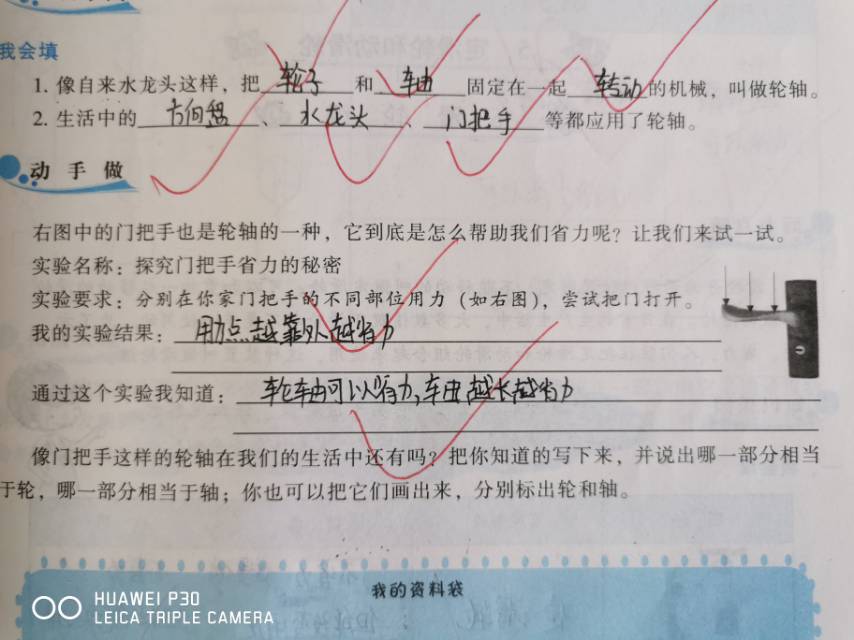 我会填
1. 像自来水龙头这样，把 轮子 和 车由 固定在一起 转动 的机械，叫做轮轴。
2. 生活中的 方向盘 、 水龙头 、 门把手 等都应用了轮轴。
动 手 做
右图中的门把手也是轮轴的一种，它到底是怎么帮助我们省力呢？让我们来试一试。
实验名称：探究门把手省力的秘密
实验要求：分别在你家门把手的不同部位用力（如右图），尝试把门打开。
我的实验结果： 用力点越靠外越省力
通过这个实验我知道： 轮轴可以省力，车由越长越省力
像门把手这样的轮轴在我们的生活中还有吗？把你知道的写下来，并说出哪一部分相当
于轮，哪一部分相当于轴；你也可以把它们画出来，分别标出轮和轴。
我的资料袋
HUAWEI P30
LEICA TRIPLE CAMERA